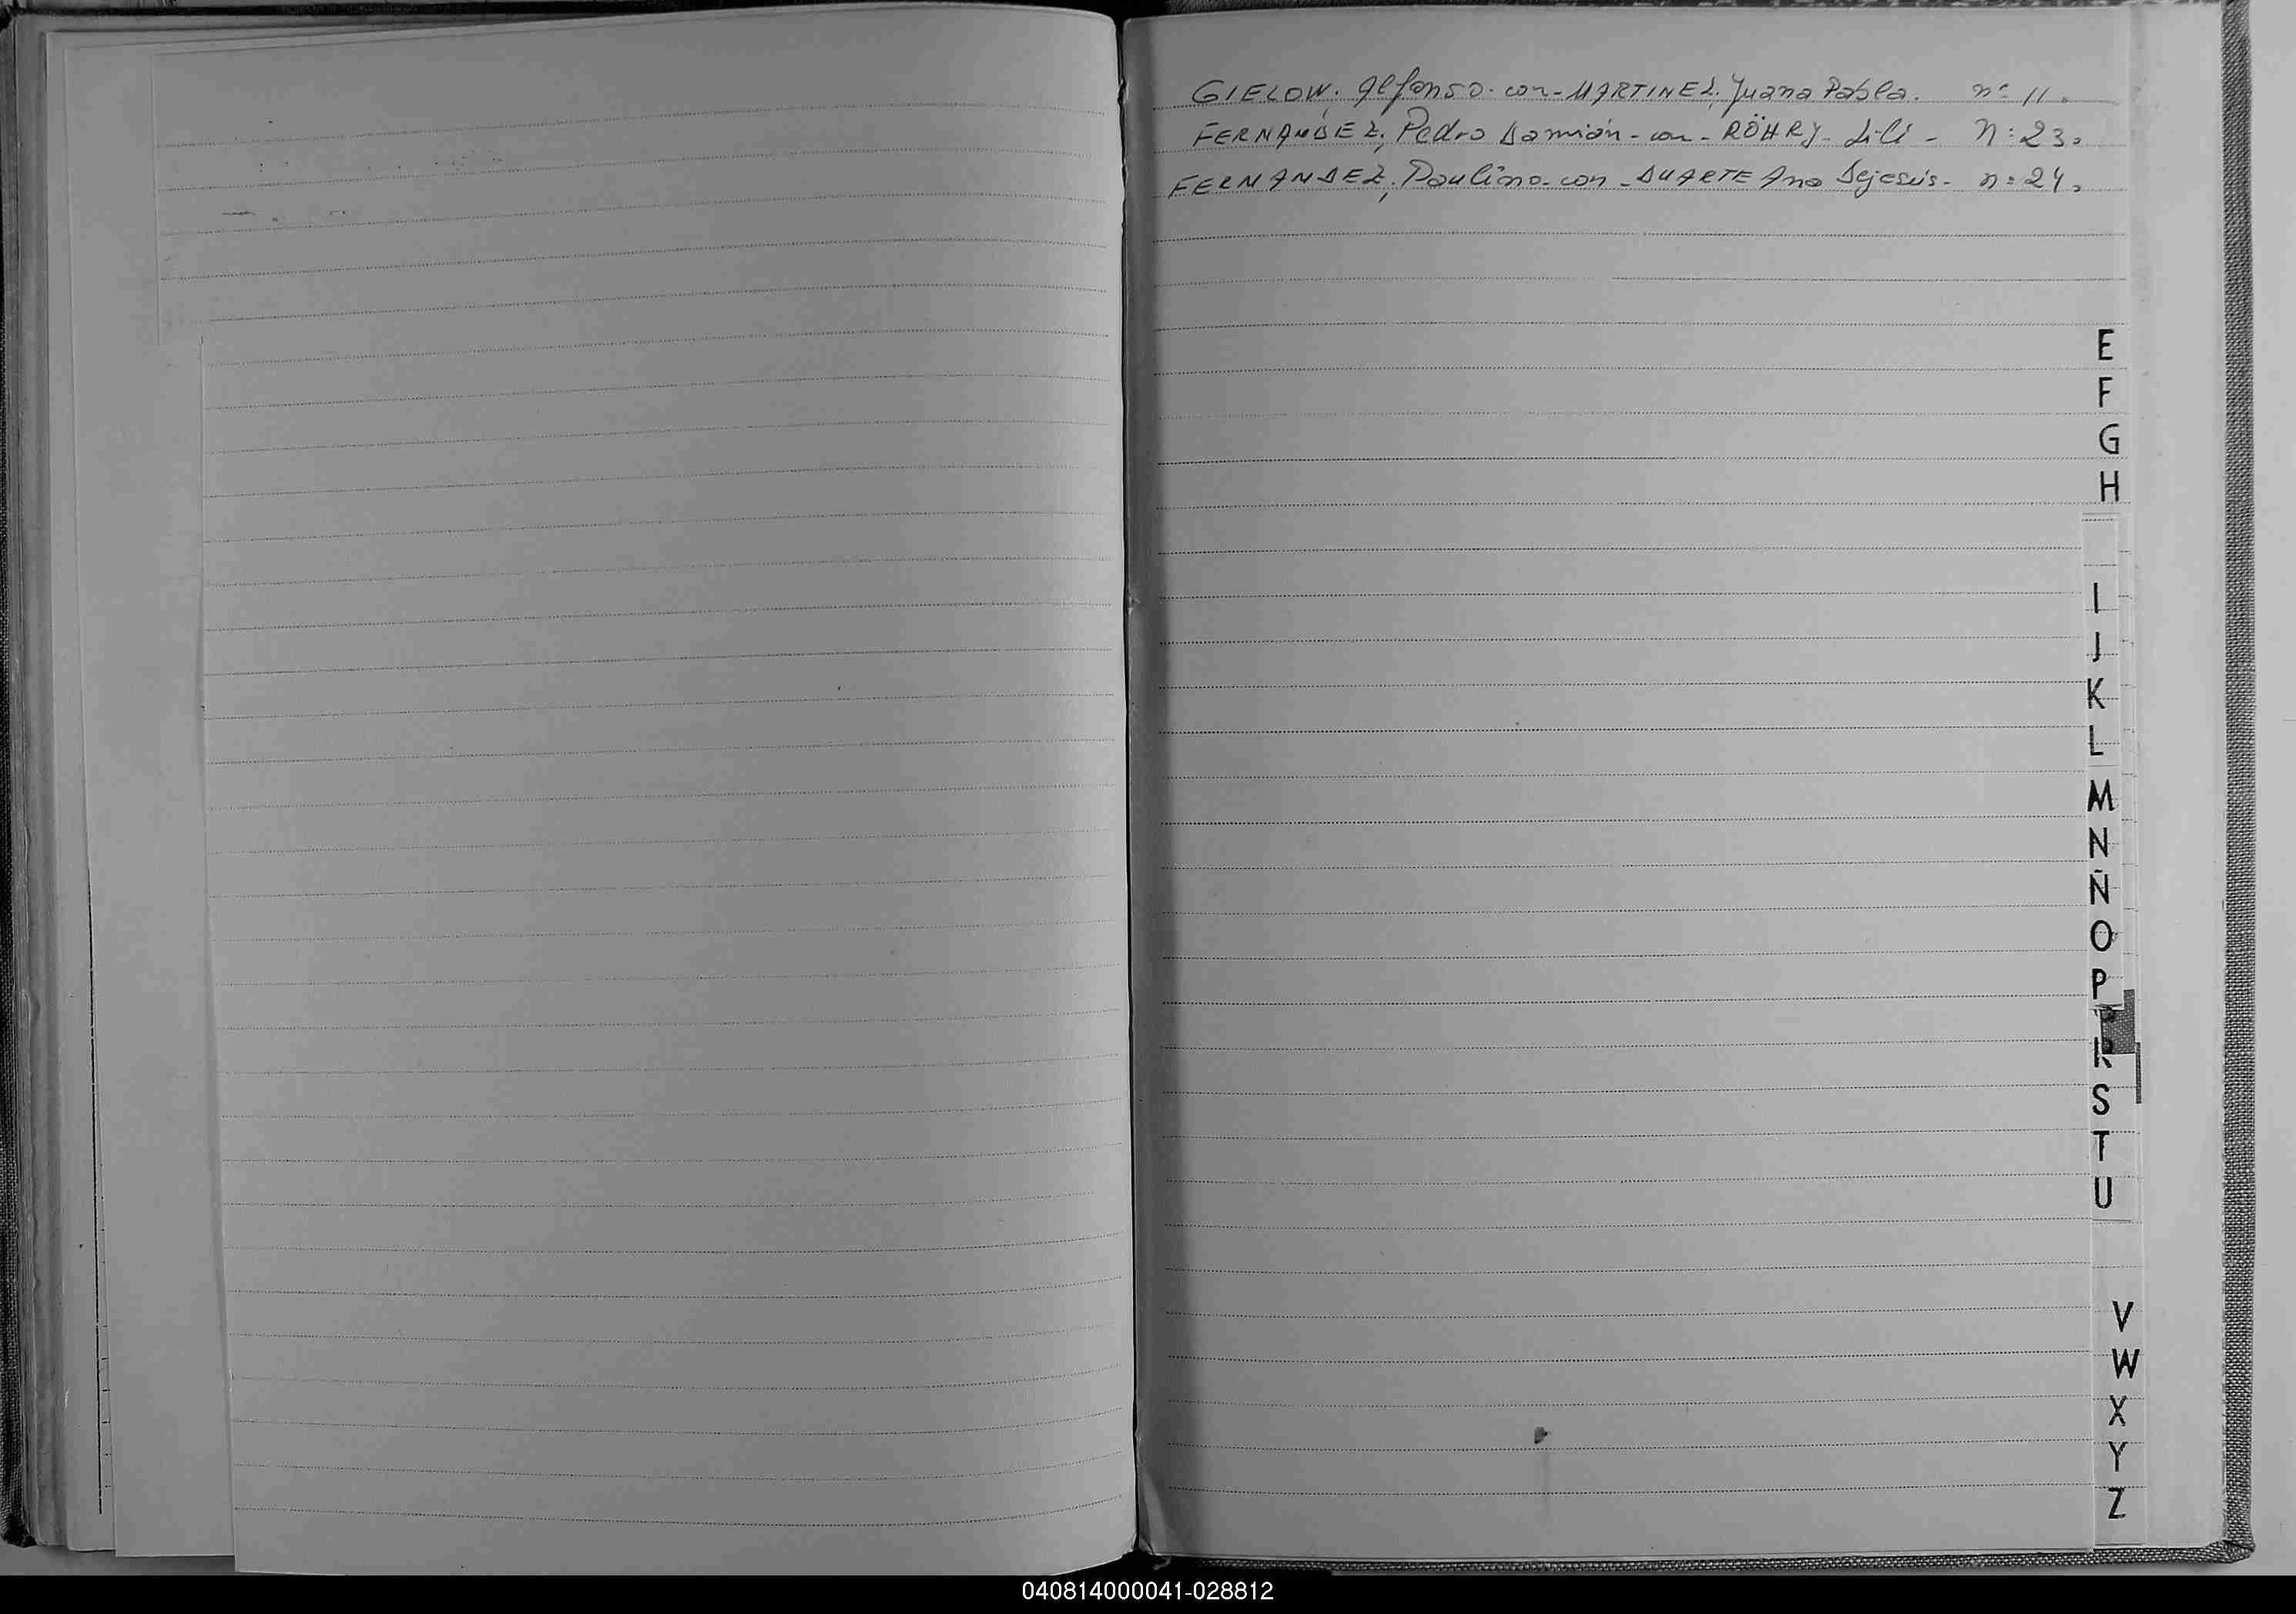 GIELOW. Alfonso. con - MARTINEZ, Juana Pabla. nº 11.
FERNANDEZ, Pedro Damián - con - RÖHRY - Lili - n: 23.
FERNANDEZ, Paulino - con - DUARTE Ana Dejesús - n: 24.
E
F
G
H
I
J
K
L
M
N
Ñ
O
P
R
S
T
U
V
W
X
Y
Z
040814000041-028812